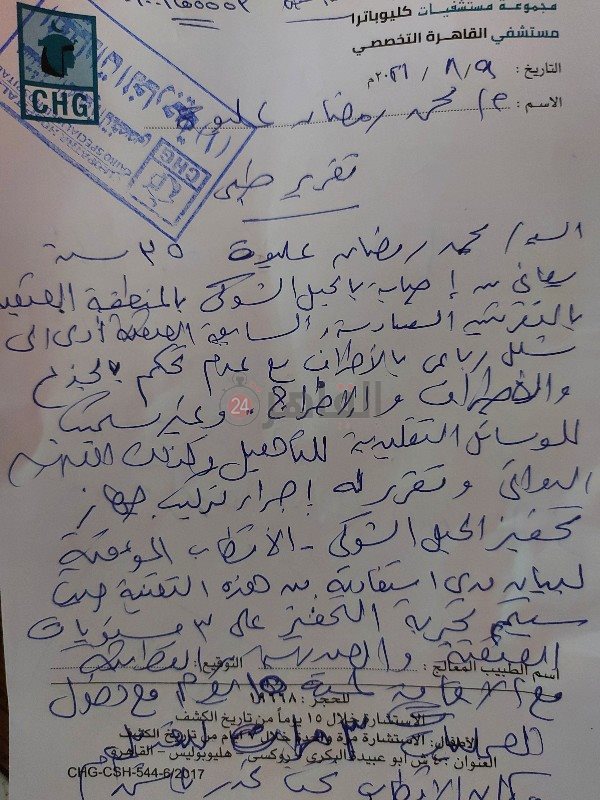 مجموعة مستشفيات كليوباترا
مستشفي القاهرة التخصصي
التاريخ : ٩ / ٨ / ٢٠٢١م
الاسم : م/ محمد رمضان عليوة
CHG
تقرير طبي
السيد/ محمد رمضان عليوة ٣٥ سنة
يعاني من إصابة بالحبل الشوكي بالمنطقة العنقية
بالفقرتين السادسة والسابعة العنقية أدى الى
شلل رباعي بالأطراف مع عدم تحكم بالجذع
والأطراف والاخراج وغير
القاهرة 24
للوسائل التقليدية للتأهيل وكذلك
الدوائي وتقرر له إجراء تركيب جهاز
تحفيز الحبل الشوكي - الأقطاب المؤقتة
لبيان مدى استفادته من هذه التقنية حيث
سيتم تجربة التحفيز على ٣ مستويات
العنقية والصدرية والقطنية
اسم الطبيب المعالج : التوقيع :
مع الاقامة لمدة يوم مع دخول
للحجز : ١٩٦٦٨
الاستشارة خلال ١٥ يوماً من تاريخ الكشف
العمليات ٣ مرات
الأطفال: الاستشارة مرة واحدة خلال أيام من تاريخ الكشف
العنوان : ٤ ش أبو عبيدة البكري - روكسي - هليوبوليس - القاهرة
CHG-CSH-544-6/2017
الأقطاب تحت مخدر